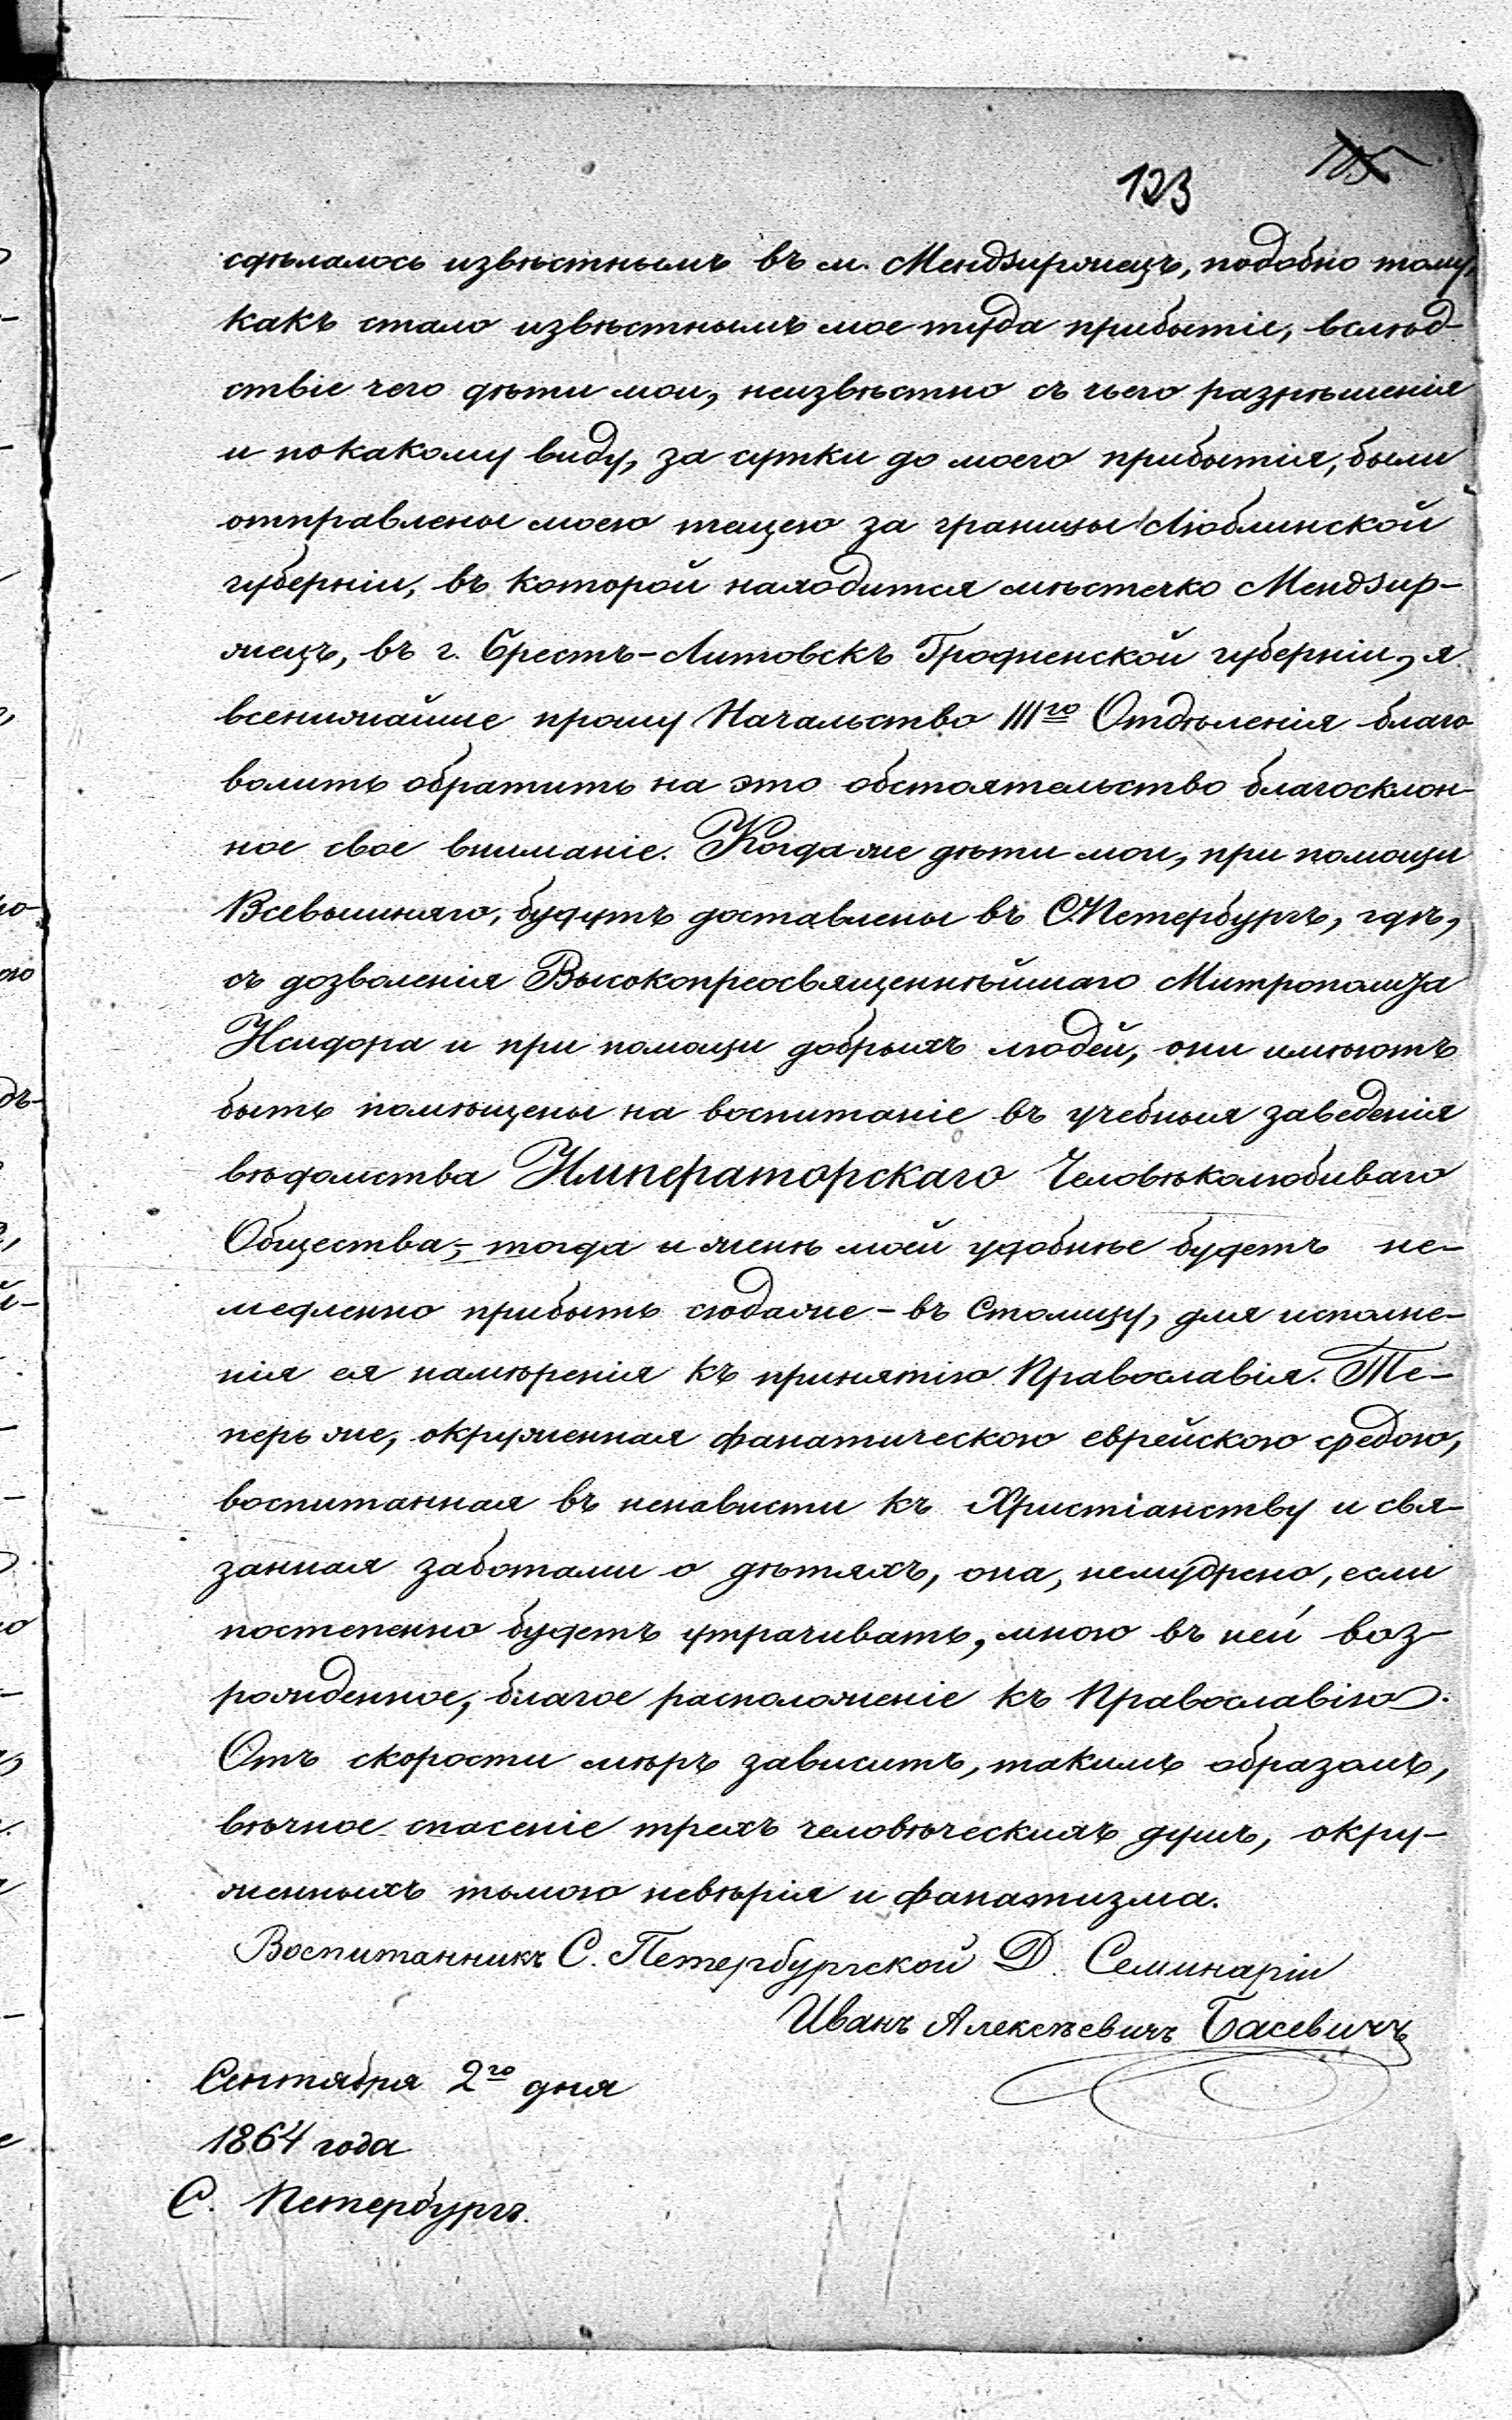 123
сдѣлалось извѣстнымъ въ м. Мендзиржецъ, подобно тому,
какъ стало извѣстнымъ мое туда прибытіе, вслѣд-
ствіе чего дѣти мои, неизвѣстно съ чьего разрѣшенія
и покакому виду, за сутки до моего прибытія, были
отправлены моею тещею за границы Люблинской
губерніи, въ которой находится мѣстечко Мендзир-
жецъ, въ г. Брестъ-Литовскъ Гродненской губерніи, я
всенижайше прошу Начальство III го Отдѣленія благо
волить обратить на это обстоятельство благосклон-
ное свое вниманіе. Когда же дѣти мои, при помощи
Всевышняго, будутъ доставлены въ С.Петербургъ, гдѣ,
съ дозволенія Высокопреосвященнѣйшаго Митрополита
Исидора и при помощи добрыхъ людей, они имѣютъ
быть помѣщены на воспитаніе въ учебныя заведенія
вѣдомства Императорскаго Человѣколюбиваго
Общества,- тогда и женѣ моей удобнѣе будетъ не-
медленно прибыть сюдаже - въ столицу, для исполне-
нія ея намѣренія къ принятію Православія. Те-
перь же, окруженная фанатическою еврейскою средою,
воспитанная въ ненависти къ Христіанству и свя-
занная заботами о дѣтяхъ, она, немудрено, если
постепенно будетъ утрачивать, мною въ ней воз-
рожденное, благое расположеніе къ Православію.
Отъ скорости мѣръ зависитъ, такимъ образомъ,
вѣчное спасеніе трехъ человѣческихъ душъ, окру-
женныхъ тьмою невѣрія и фанатизма.
Воспитанникъ С. Петербургской Д. Семинаріи
Иванъ Алексѣевичъ Басевичъ
Сентября 2го дня
1864 года
С. Петербургъ.